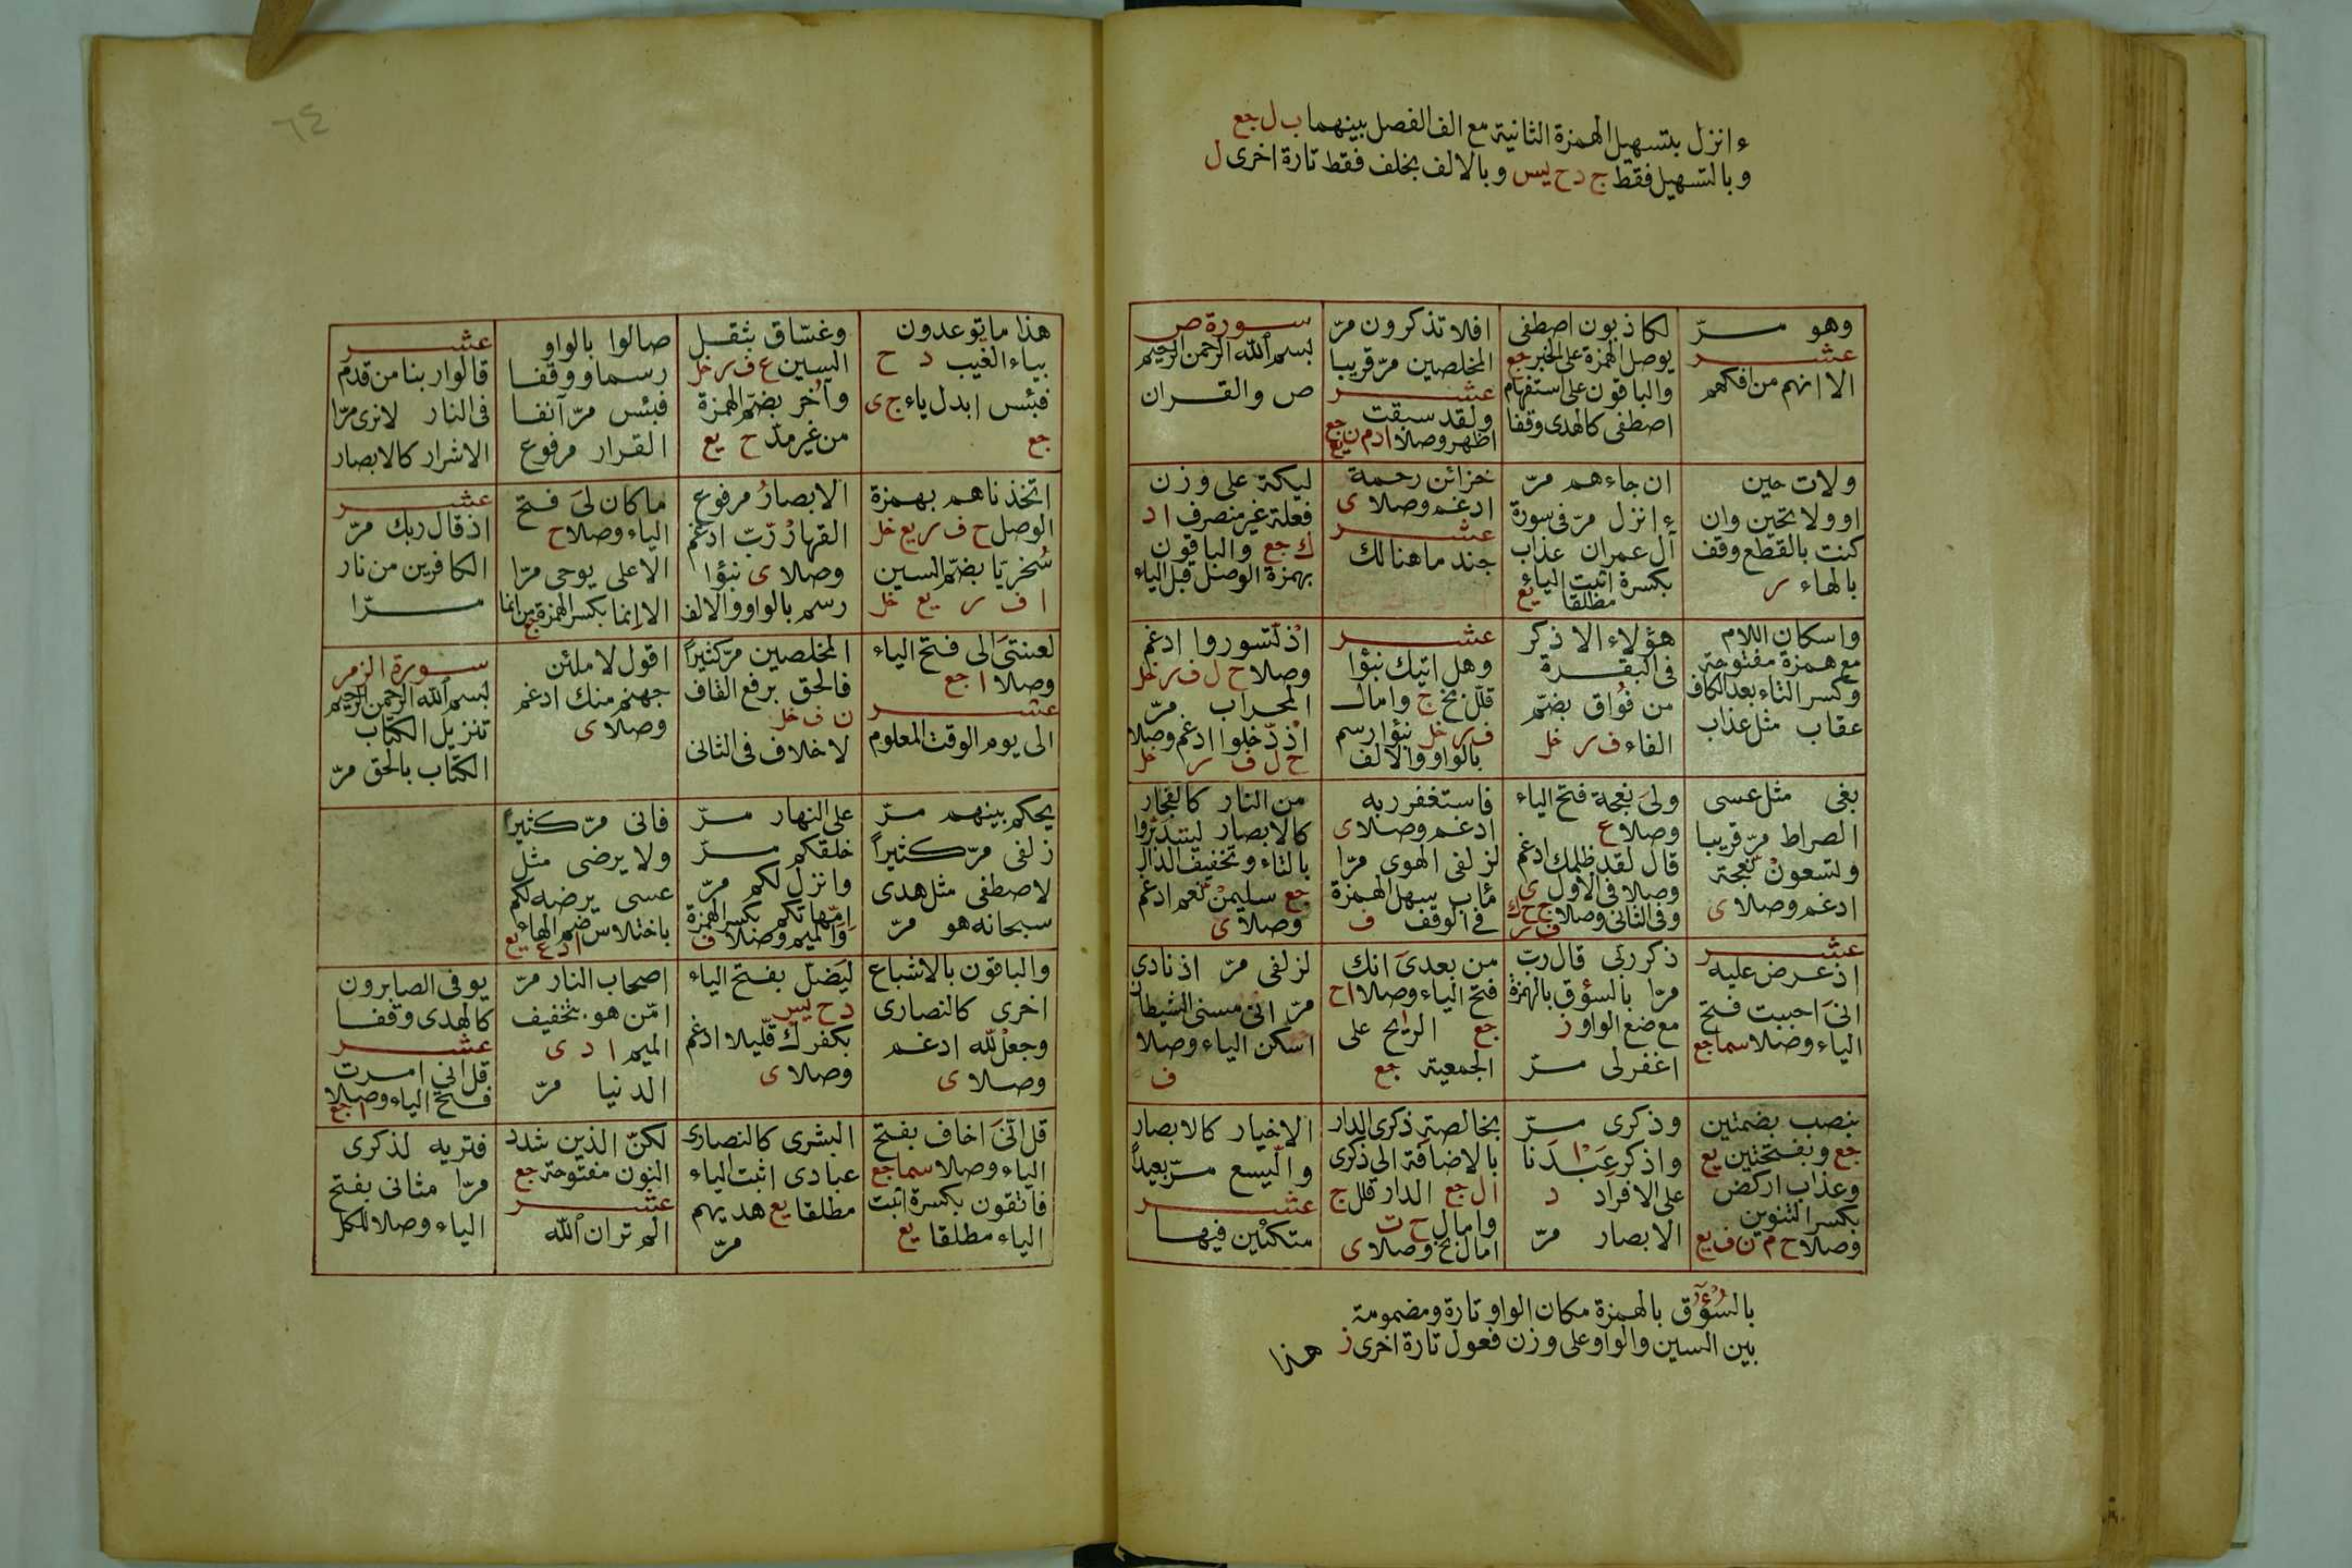 ءانزل بتسهيل الهمزة الثانية مع الف الفصل بينهما ب ل جع
وبالتسهيل فقط ج د ح يس وبالالف بخلف فقط تارة اخرى ل
وهو مرّ
عشر
الا انهم من افكهم
لكاذبون اصطفى
بوصل الهمزة على الخبر جع
والباقون على استفهام
اصطفى كالهدى وقفا
افلا تذكرون مرّ
المخلصين مرّ قريبا
عشر
ولقد سبقت
اظهر وصلا ا د م ن جع يع
سورة ص
بسم الله الرحمن الرحيم
ص والقران
ولات حين
او ولا تحين وان
كنت بالقطع وقف
بالهاء ر
ان جاءهم مرّ
ءانزل مرّ فى سورة
آل عمران عذاب
بكسرة اثبت الياء
مطلقا يع
خزائن رحمة
ادغم وصلا ى
عشر
جند ما هنالك
ليكة على وزن
فعلة غير منصرف ا د
ك جع والباقون
بهمزة الوصل قبل الياء
واسكان اللام
مع همزة مفتوحة
وكسر التاء بعد الكاف
عقاب مثل عذاب
هؤلاء الا ذكر
فى البقرة
من فواق بضمّ
الفاء ف ر خل
عشر
وهل اتيك نبؤا
قلل بخ ج وامال
ف ر خل نبؤا رسم
بالواو والالف
اذ تّسوروا ادغم
وصلا ح ل ف ر خل
المحراب مرّ
اذ دّخلوا ادغم وصلا
ح ل ف ر خل
بغى مثل عسى
الصراط مرّ قريبا
ولتسعون نّعجة
ادغم وصلا ى
ولى نعجة فتح الياء
وصلا ع
قال لقد ظلمك ادغم
وصلا فى الاول ى
وفى الثانى وصلا ج ح ك ف ر
فاستغفر ربه
ادغم وصلا ى
لزلفى الهوى مرّا
مئاب سهل الهمزة
فى الوقف ف
من النار كالفجار
كالابصار ليتدبروا
بالتاء وتخفيف الدال
جع سليمن نّعم ادغم
وصلا ى
عشر
اذ عرض عليه
انى احببت فتح
الياء وصلا سما جع
ذكر ربى قال ربّ
مرّا بالسؤق بالهمزة
موضع الواو ز
اغفر لى مرّ
من بعدى انك
فتح الياء وصلا ا ح
جع الريح على
الجمعية جع
لزلفى مرّ اذ نادى
مرّ انى مسنى الشيطان
اسكن الياء وصلا
ف
بنصب بضمتين
جع وبفتحتين يع
وعذاب اركض
بكسر التنوين
وصلا ح م ن ف يع
وذكرى مرّ
واذكر عبدنا
على الافراد د
الابصار مرّ
بخالصة ذكرى الدار
بالاضافة الى ذكرى
ا ل جع الدار قلل ج
وامال ح ت
امال بخ وصلا ى
الاخيار كالابصار
والّيسع مرّ بعيداً
عشر
متكئين فيها
بالسؤق بالهمزة مكان الواو تارة ومضمومة
بين السين والواو على وزن فعول تارة اخرى ز
هذا
٦٤
هذا ما توعدون
بياء الغيب د ح
فبئس ابدل ياء ج ى
جع
وغسّاق بثقل
السين ع ف ر خل
وآخر بضمّ الهمزة
من غير مدّ ح يع
صالوا بالواو
رسما ووقفا
فبئس مرّ آنفا
القرار مرفوع
عشر
قالوا ربنا من قدم
فى النار لا نرى مرّا
الاشرار كالابصار
اتخذناهم بهمزة
الوصل ح ف ر يع خل
سُخريّا بضمّ السين
ا ف ر يع خل
الابصارُ مرفوع
القهار رّبّ ادغم
وصلا ى نبؤا
رسم بالواو والالف
ما كان لى فتح
الياء وصلا ح
الاعلى يوحى مرّا
الا انما بكسر الهمزة من انما جع
عشر
اذ قال ربك مرّ
الكافرين من نار
مرّا
لعنتى الى فتح الياء
وصلا ا جع
عشر
الى يوم الوقت المعلوم
المخلصين مرّ كثيراً
فالحق برفع القاف
ن ف خل
لا خلاف فى الثانى
اقول لاملئن
جهنم منك ادغم
وصلا ى
سورة الزمر
بسم الله الرحمن الرحيم
تنزيل الكتاب
الكتاب بالحق مرّ
يحكم بينهم مرّ
زلفى مرّ كثيراً
لاصطفى مثل هدى
سبحانه هو مرّ
على النهار مرّ
خلقكم مرّ
وانزل لكم مرّ
امّهاتكم بكسر الهمزة
والميم وصلا ف
فانى مرّ كثيراً
ولا يرضى مثل
عسى يرضه لكم
باختلاس ضم الهاء
ا د ع يع
والباقون بالاشباع
اخرى كالنصارى
وجعل لّله ادغم
وصلا ى
ليَضلّ بفتح الياء
د ح يس
بكفرك قّليلا ادغم
وصلا ى
اصحاب النار مرّ
امّن هو بتخفيف
الميم ا د ى
الدنيا مرّ
يوفى الصابرون
كالهدى وقفا
عشر
قل انى امرت
فتح الياء وصلا
ا جع
قل انى اخاف بفتح
الياء وصلا سما جع
فاتقون بكسرة اثبت
الياء مطلقا يع
البشرى كالنصارى
عبادى اثبت الياء
مطلقا يع هديهم
مرّ
لكنّ الذين شدد
النون مفتوحة جع
عشر
الم تر ان الله
فتريه لذكرى
مرّا مثانى بفتح
الياء وصلا للكل